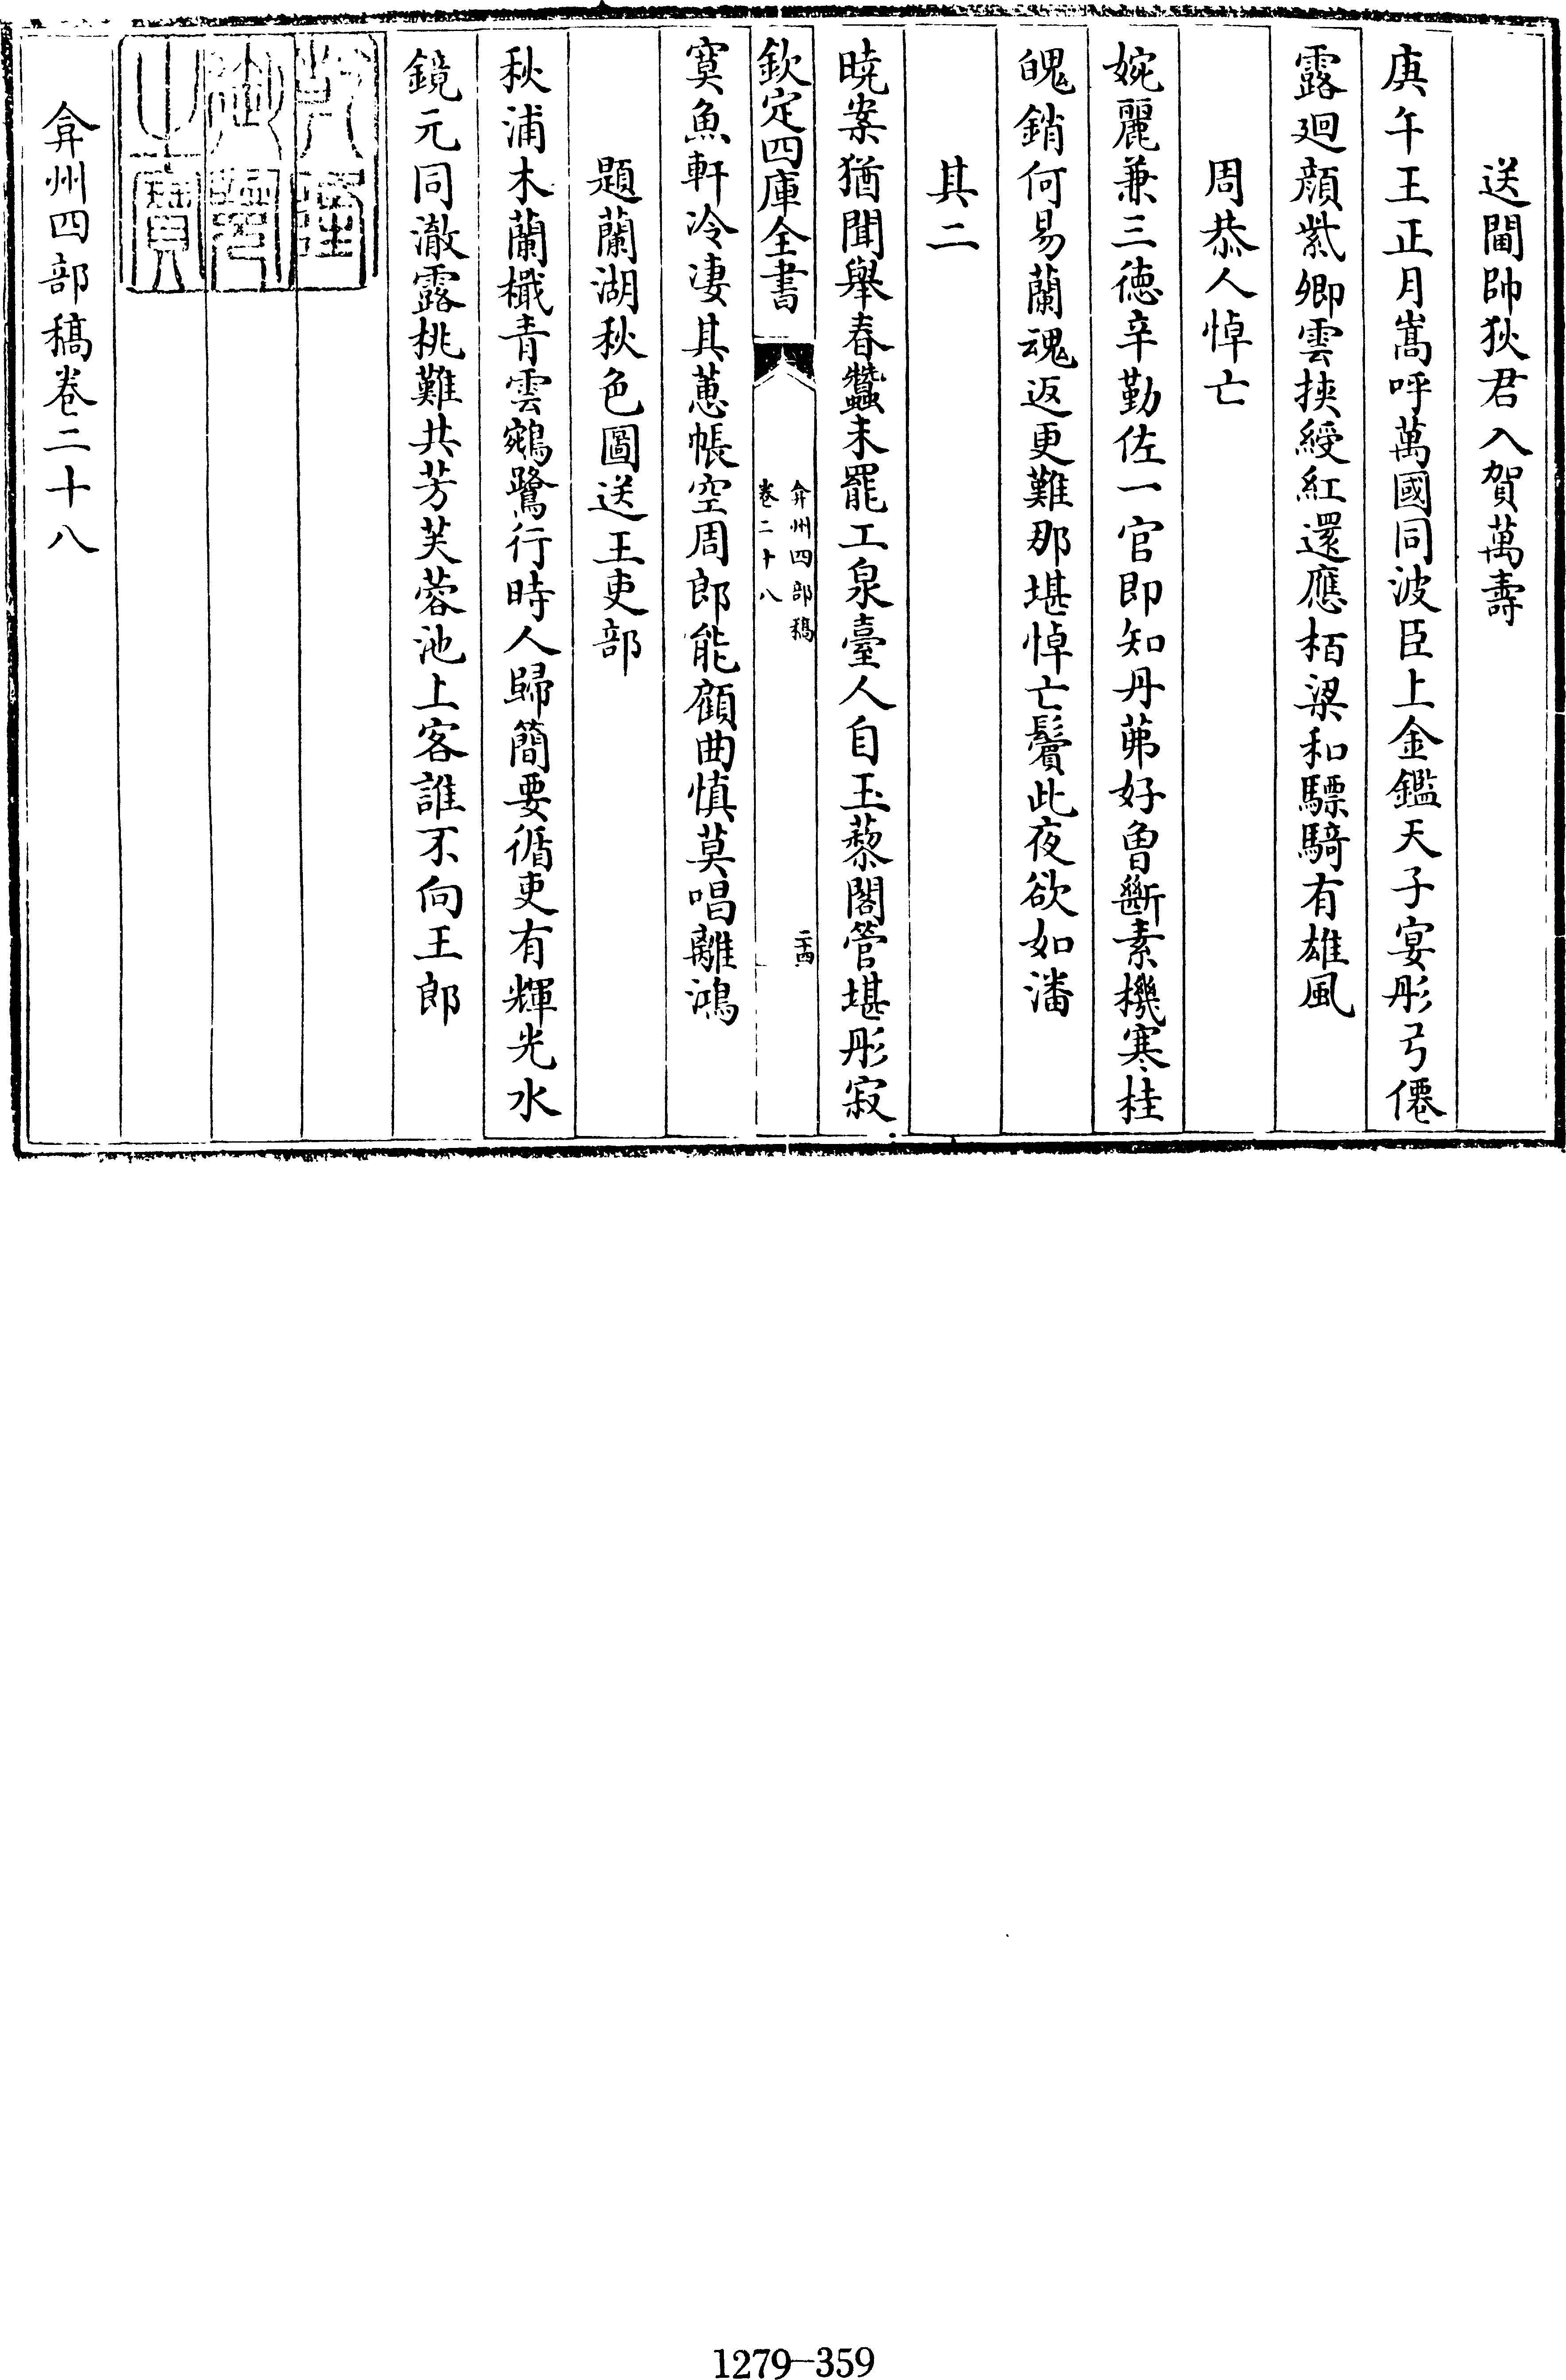 送閫帥狄君入賀萬壽
庚午王正月嵩呼萬國同波臣上金鑑天子宴彤弓僊
露廻顔紫卿雲挾綬紅還應栢梁和驃騎有雄風
周恭人悼亡
婉麗兼三徳辛勤佐一官即知丹茀好曽斷素機寒桂
魄銷何易蘭魂返更難那堪悼亡鬢此夜欲如潘
其二
曉案猶聞舉春蠶未罷工泉臺人自玉藜閣管堪彤寂
欽定四庫全書
弇州四部稿
卷二十八
二十四
寞魚軒冷淒其蕙帳空周郎能顧曲慎莫唱離鴻
題蘭湖秋色圖送王吏部
秋浦木蘭檝青雲鵷鷺行時人歸簡要循吏有輝光水
鏡元同澈露桃難共芳芙蓉池上客誰不向王郎
乾隆
御覽
之寶
弇州四部稿卷二十八
1279—359